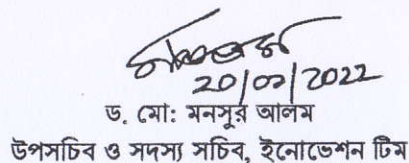 20/০৩/2022
ড. মো: মনসুর আলম
উপসচিব ও সদস্য সচিব, ইনোভেশন টিম